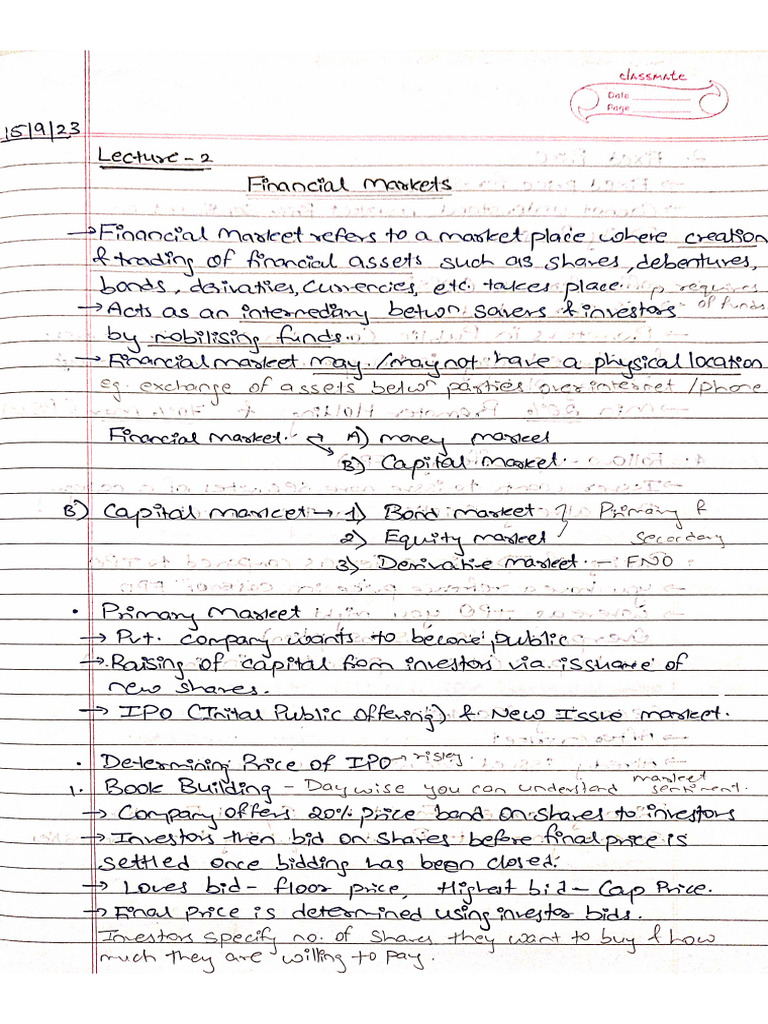 classmate
Date
Page
15/9/23
Lecture - 2
Financial Markets
→ Financial Market refers to a market place where creation
& trading of financial assets such as shares, debentures,
bonds, derivaties, currencies, etc. takes place.
→ Acts as an internediary betwn savers & investors → requires of funds
by mobilising funds...
→ Financial market may / may not have a physical location
eg. exchange of assets betwn parties over internet / phone
Financial market. A) money market
B) Capital market.
B) Capital market → 1) Bond market } Primary &
2) Equity market } Secondary
3) Derivative market. - FNO
• Primary Market
→ Pvt. company wants to become public
→ Raising of capital from investors via issuane of
new shares.
→ IPO (Inital Public Offering) & New Issue market.
• Determining Price of IPO → risky
1. Book Building - Daywise you can understand market sentiment.
→ Company offers 20% price band on shares to investors
→ Investors then bid on shares before final price is
settled once bidding has been closed.
→ Loves bid - floor price, Highest bid - Cap Price.
→ Final price is determined using investor bids.
Investors specify no. of shares they want to buy & how
much they are willing to pay.